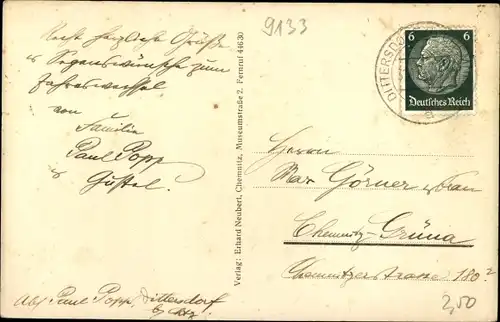 9133
Recht herzliche Grüße
u. Segenswünsche zum
Jahreswechsel
von
Familie
Paul Popp
u. Gustel.
Abs. Paul Popp, Dittersdorf
b/ Chtz
Verlag: Erhard Neubert, Chemnitz, Museumstraße 2. Fernruf 44630
DITTERSDO
6 6
Deutsches Reich
a
Herrn
Max Görner u. Frau
Chemnitz-Grüna
Chemnitzerstrasse 180
2,50